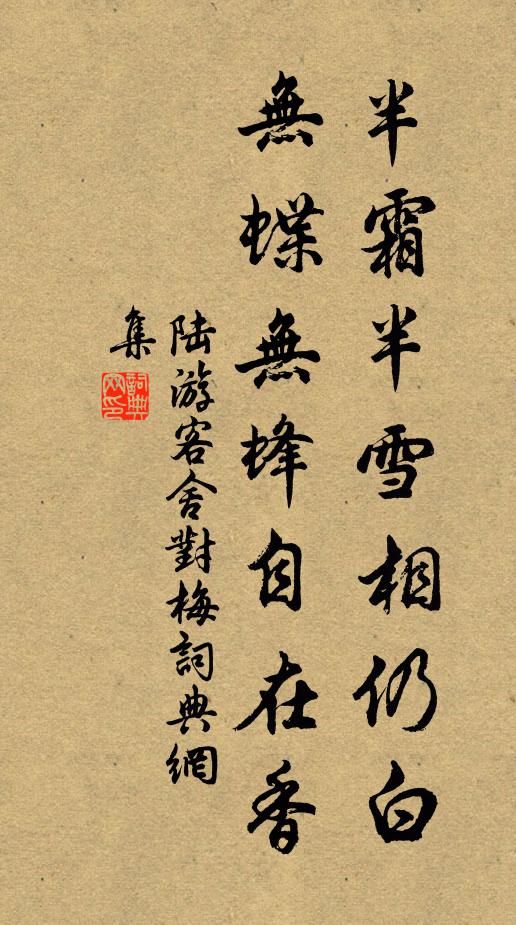 半霜半雪相仍白
無蝶無蜂自在香
陆游客舍對梅詞典網
集
詞典網印